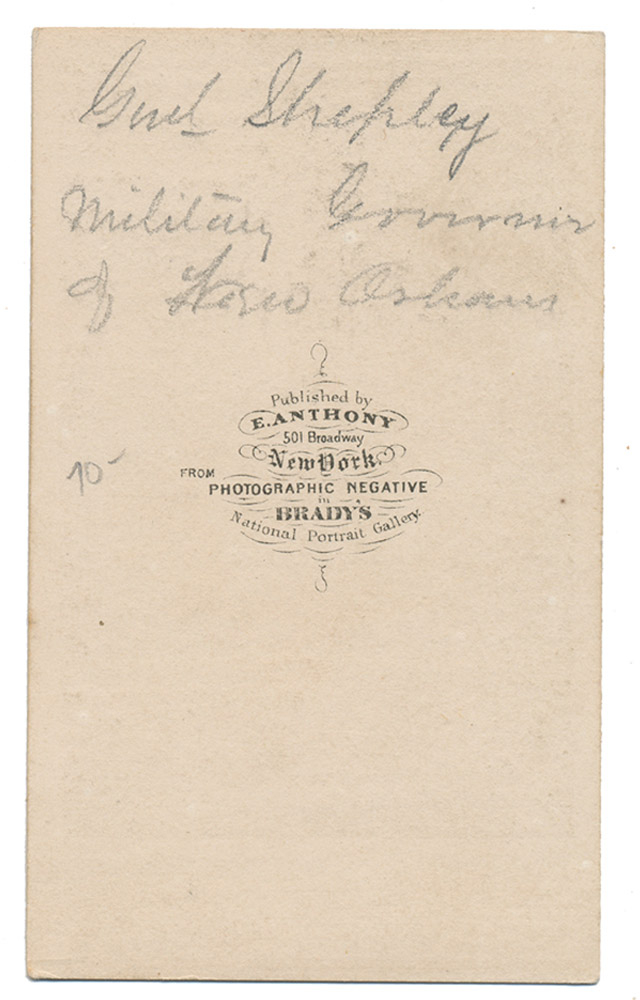 Genl Shepley
Military Governor
of New Orleans
Published by
E. ANTHONY
501 Broadway
New York.
FROM
PHOTOGRAPHIC NEGATIVE
in
BRADY'S
National Portrait Gallery.
10-